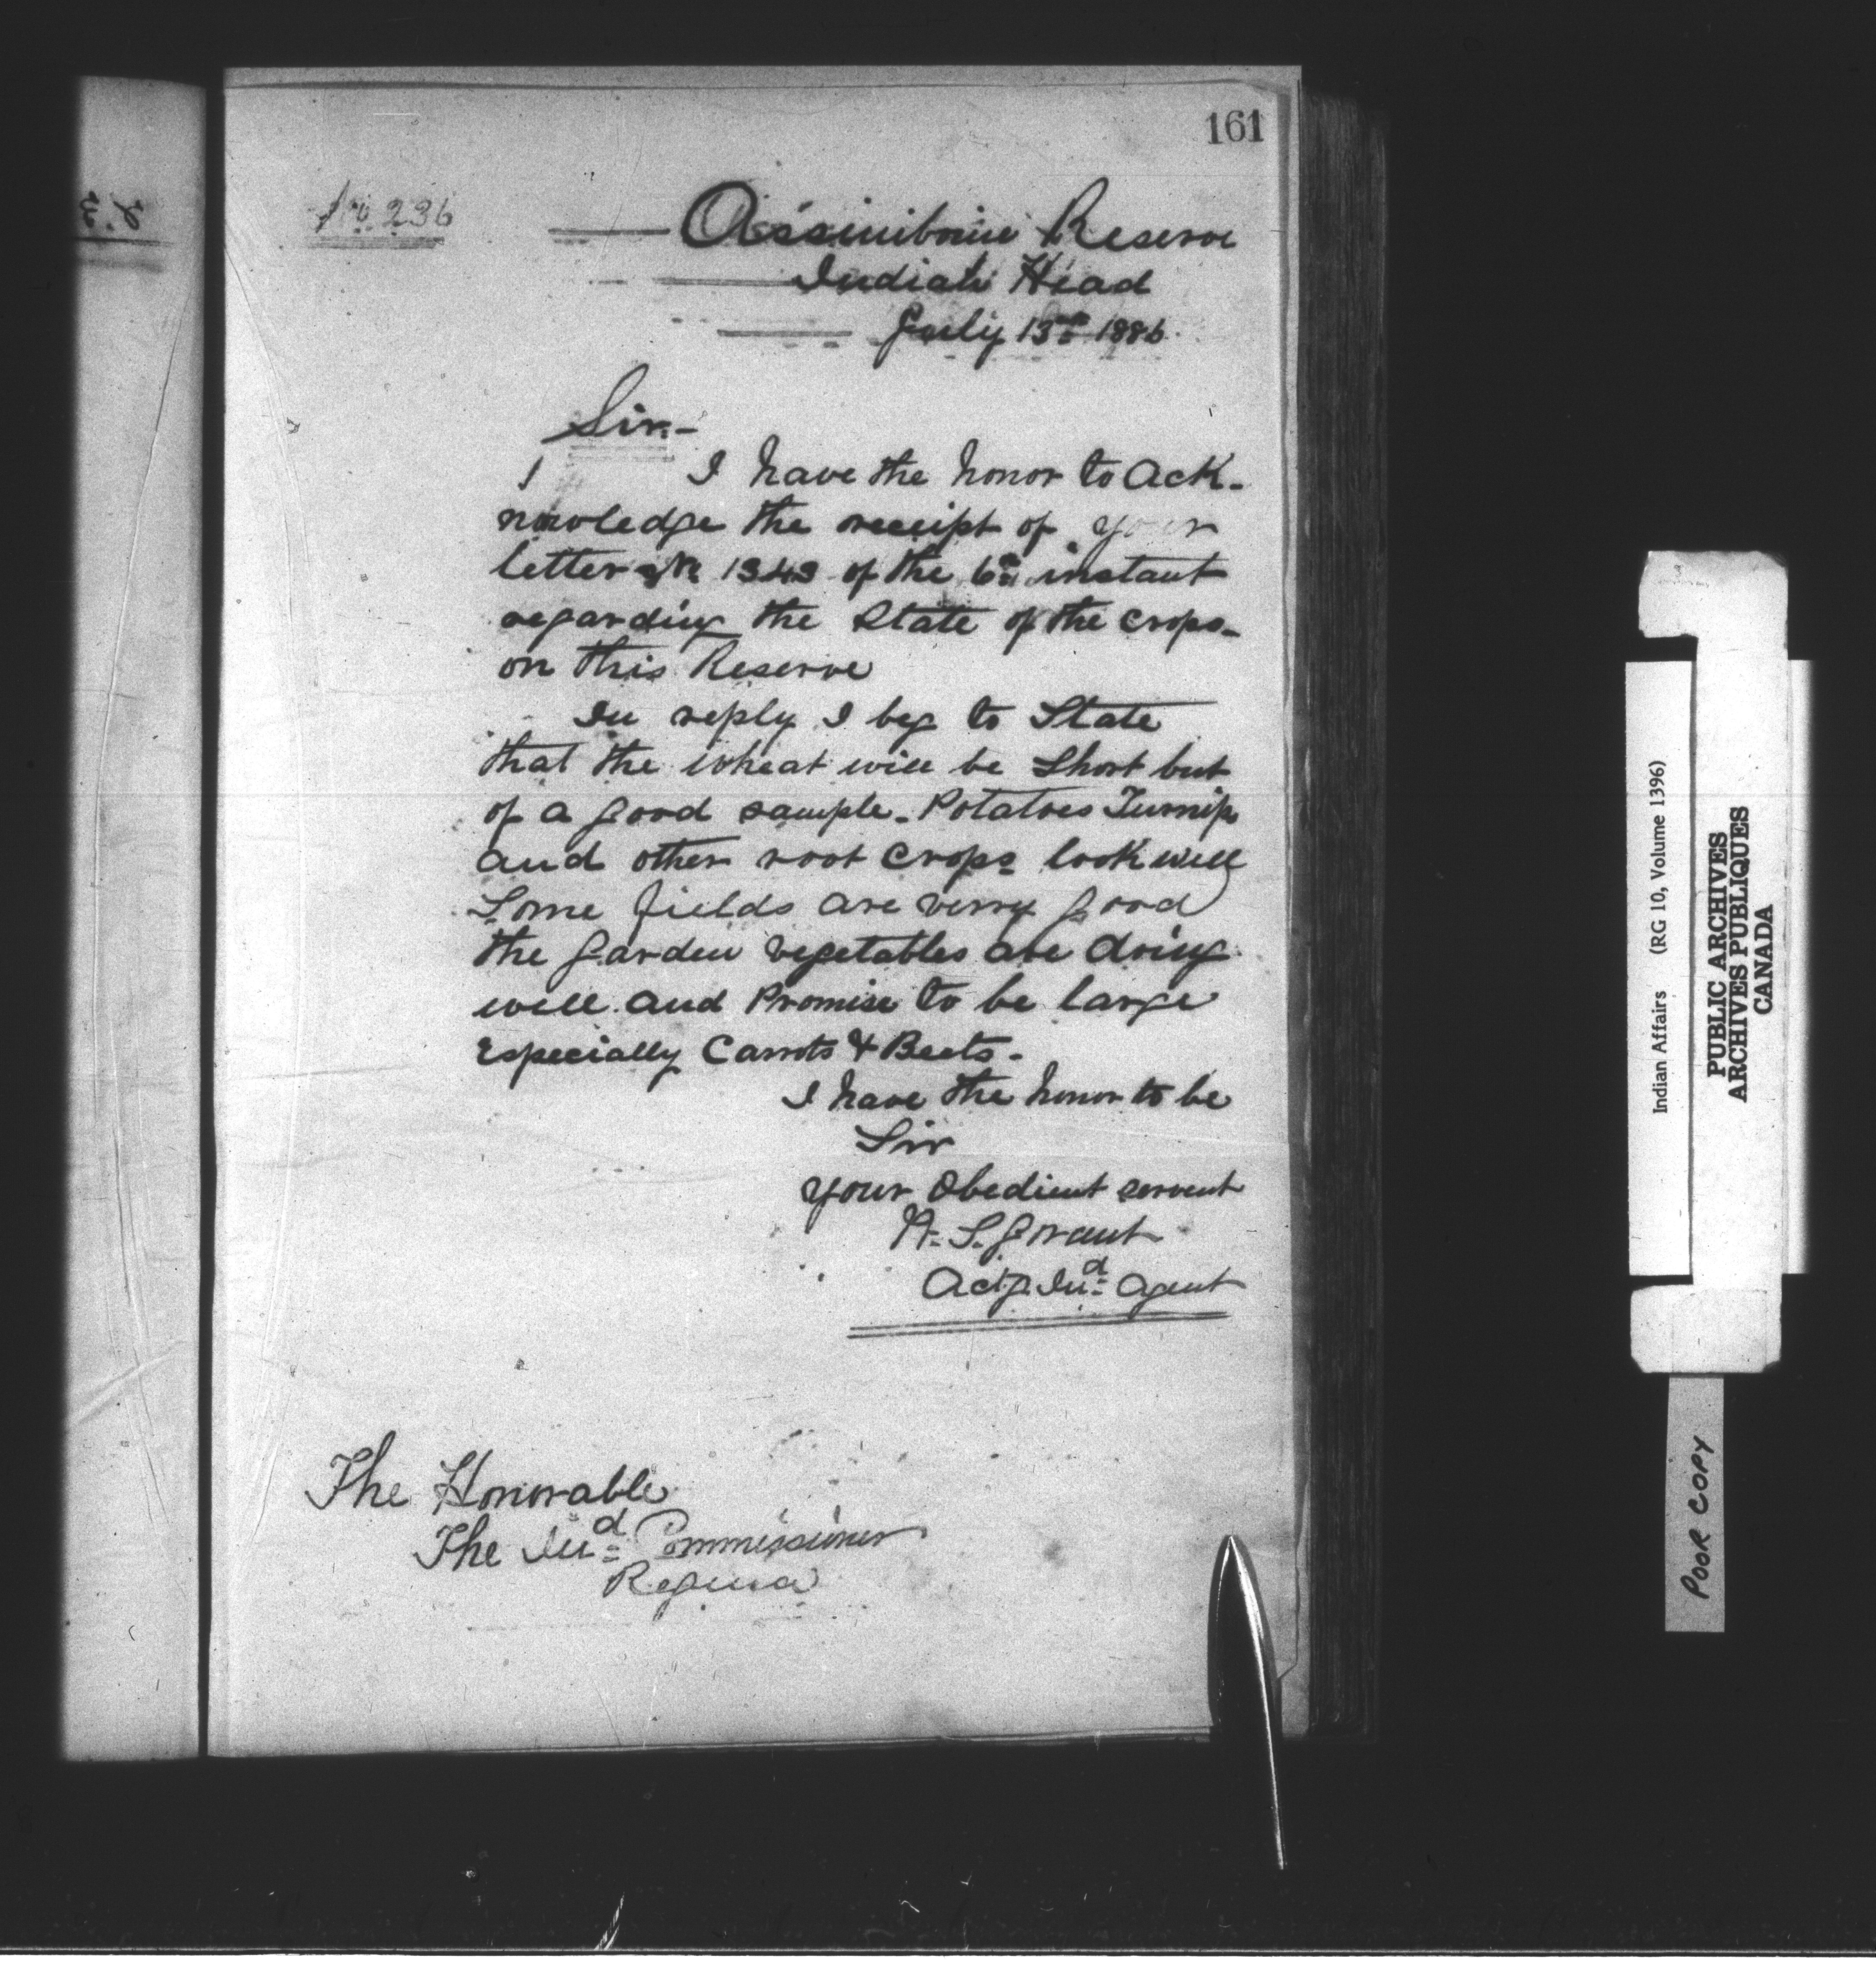 161
No. 236
Assiniboine Reserve
Indian Head
July 13th 1886.
Sir.-
I have the honor to Ack-
nowledge the receipt of your
letter No 1343 of the 6th instant
regarding the State of the crops-
on this Reserve
In reply I beg to State
that the Wheat will be Short but
of a good sample. Potatoes Turnips
and other root crops look well
Some fields are verry good
the garden vegetables are doing
well and Promise to be large
Especially Carrots & Beets.
I have the honor to be
Sir
your Obedient servent
W. S. Grant
Actg. Ind. Agent
The Honorable
The Ind. Commissioner
Regina
Indian Affairs (RG 10, Volume 1396)
PUBLIC ARCHIVES
ARCHIVES PUBLIQUES
CANADA
POOR COPY